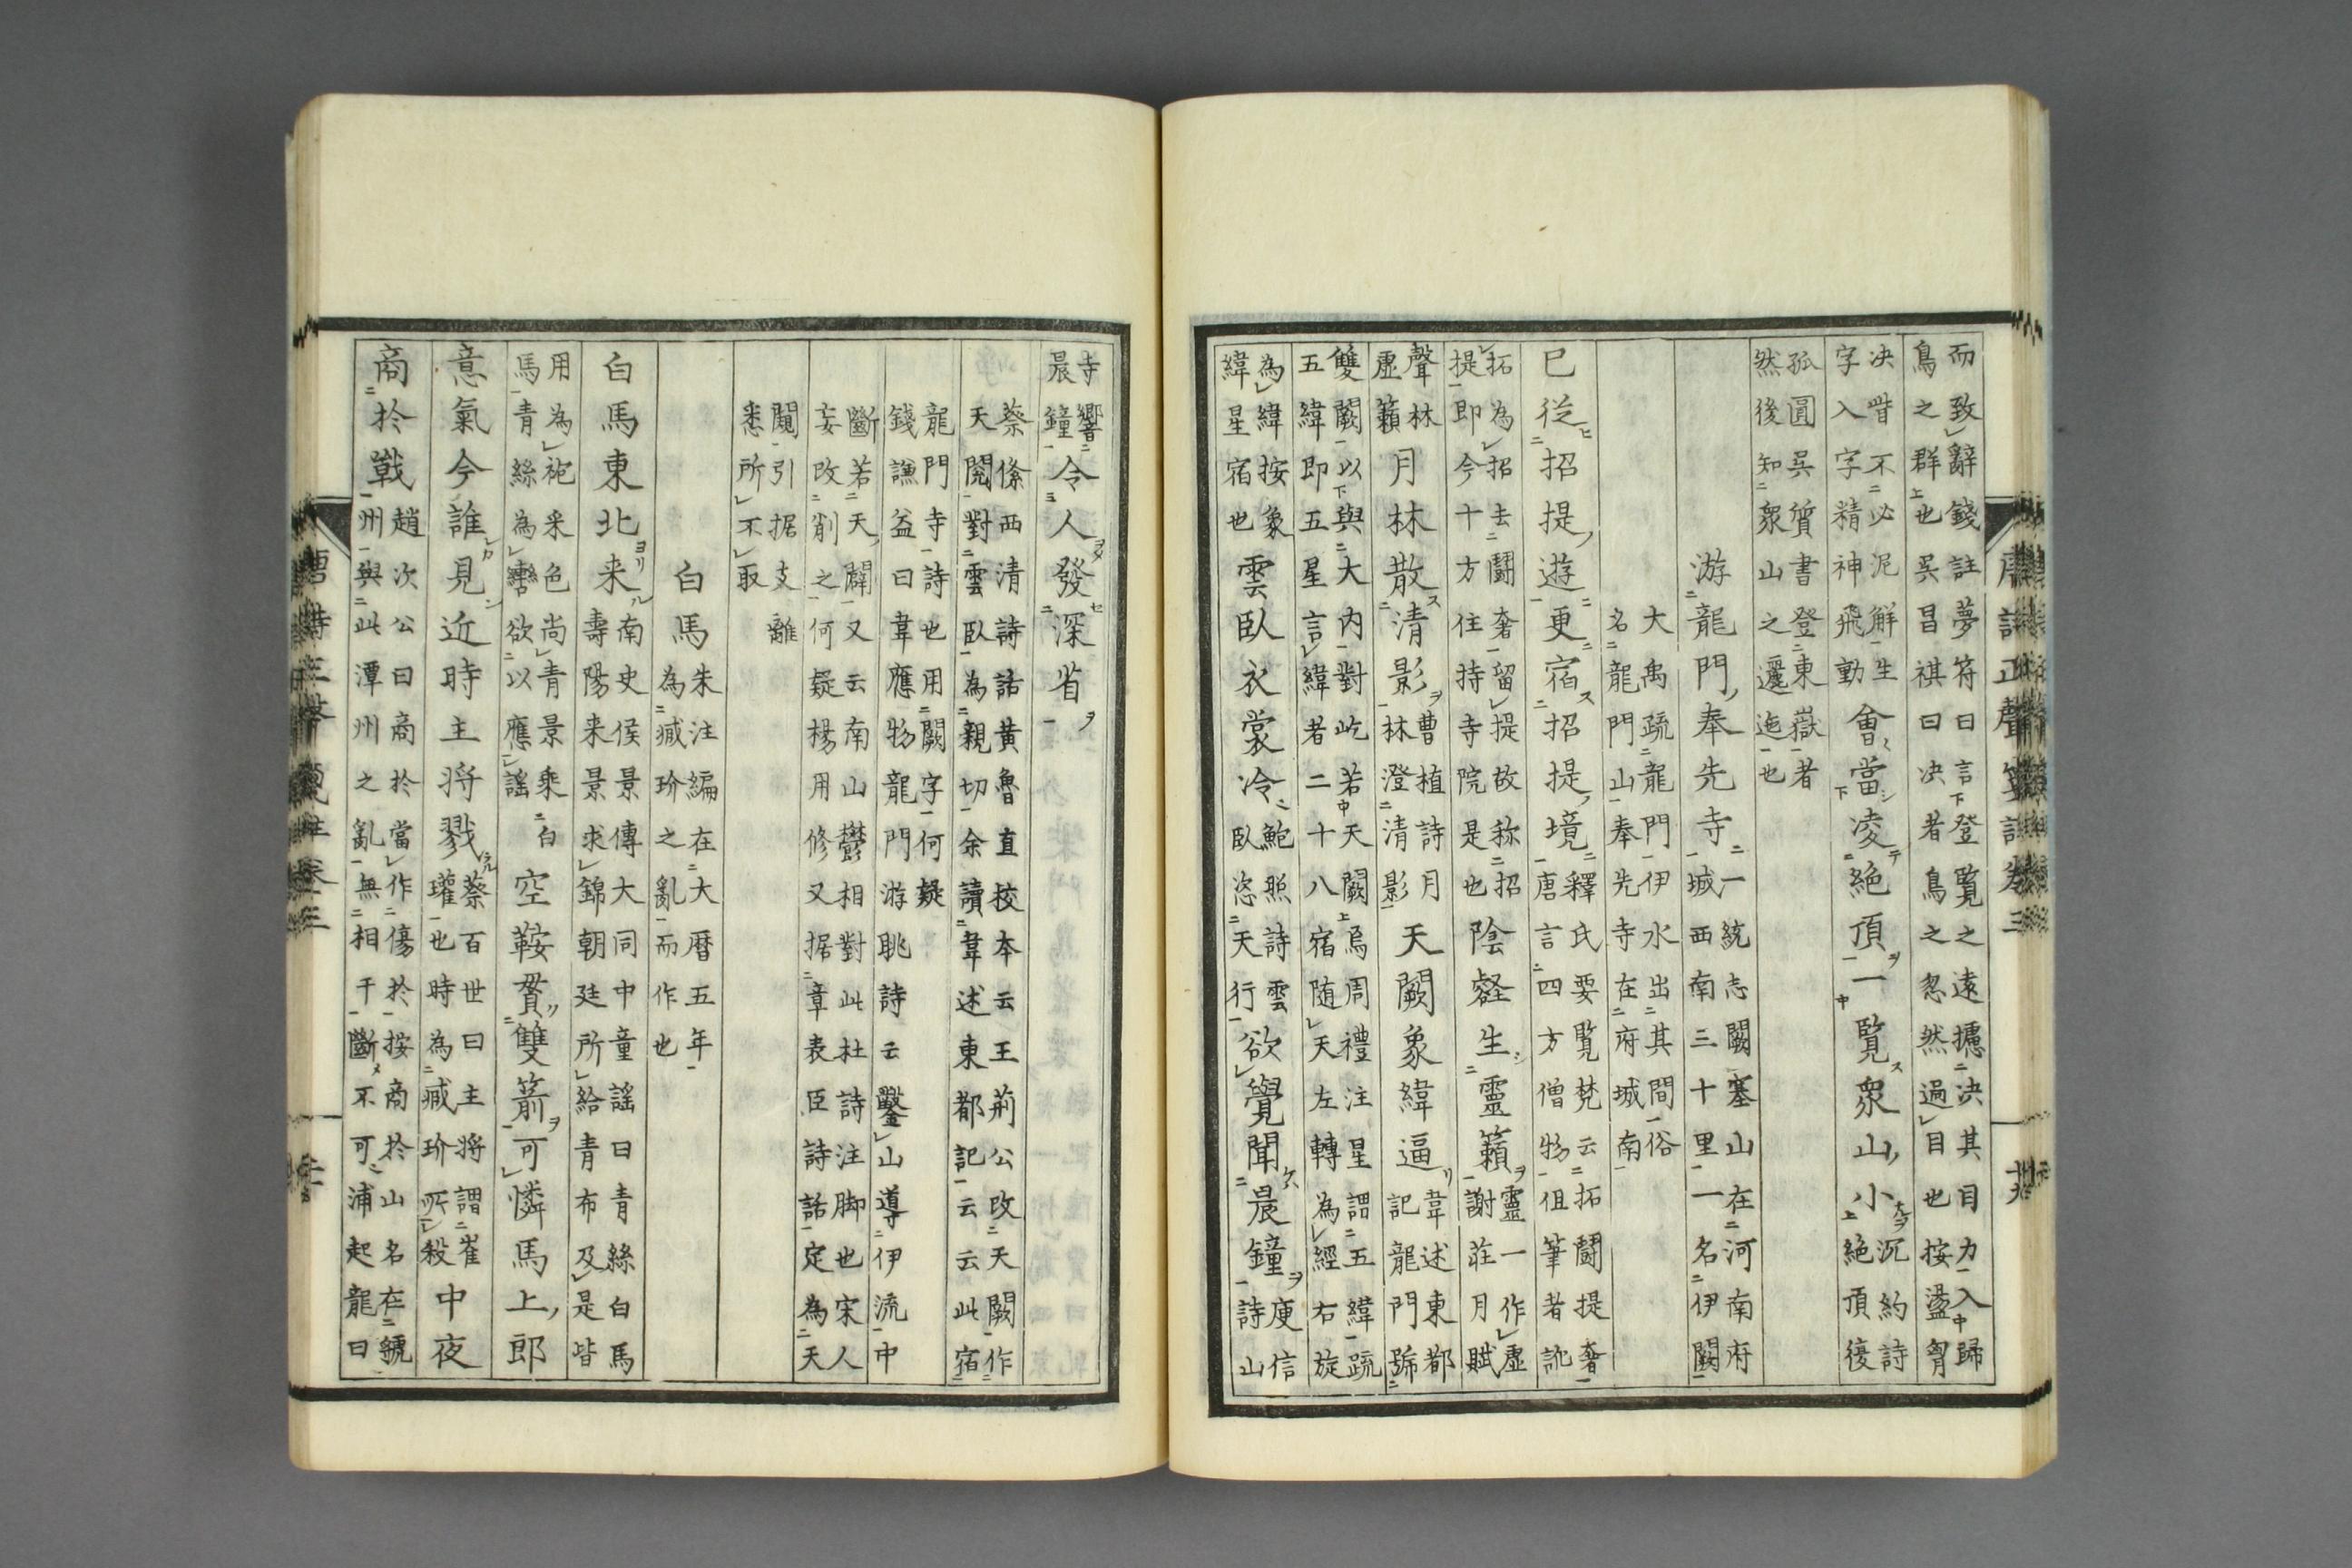 而致辭錢註夢符曰言登覽之遠攄決其目力入歸
鳥之群也呉昌祺曰决者鳥之忽然過目也按盪胷
决眥不必泥解生
字入字精神飛動
會當凌絶頂一覽衆山小
沉約詩
絶頂復
孤圓呉質書登東嶽者
然後知衆山之邐迤也
游龍門奉先寺
一統志闕塞山在河南府
城西南三十里一名伊闕
大禹疏龍門伊水出其間俗
名龍門山奉先寺在府城南
已從招提遊更宿招提境
釋氏要覽梵云拓鬪提奢
唐言四方僧物但筆者訛
拓為招去鬪奢留提故称招
提即今十方住持寺院是也
陰壑生靈籟
靈一作虛
謝莊月賦
聲林
虛籟
月林散清影
曹植詩月
林澄清影
天闕象緯逼
韋述東都
記龍門號
雙闕以與大内對屹若天闕焉周禮注星謂五緯疏
五緯即五星言緯者二十八宿随天左轉為經右旋
為緯按象
緯星宿也
雲臥衣裳冷
鮑照詩雲
臥恣天行
欲覺聞晨鐘
庾信
詩山
寺響
晨鐘
令人發深省
蔡絛西清詩話黄魯直校本云王荊公改天闕作
天閱對雲臥為親切余讀韋述東都記云云此宿
龍門寺詩也用闕字何疑
錢謙益曰韋應物龍門游眺詩云鑿山導伊流中
斷若天闢又云南山鬱相對此杜詩注脚也宋人
妄改削之何疑楊用修又据章表臣詩話定為天
闚引据支離
悉所不取
白馬
朱注編在大暦五年
為臧玠之亂而作也
白馬東北来
南史侯景傳大同中童謠曰青絲白馬
壽陽来景求錦朝廷所給青布及是皆
用為袍采色尚青景乘白
馬青絲為轡欲以應謠
空鞍貫雙箭可憐馬上郎
意氣今誰見近時主将戮
蔡百世曰主将謂崔
瓘也時為臧玠所殺
中夜
商於戰
趙次公曰商於當作傷於按商於山名在虢
州與此潭州之亂無相干斷不可浦起龍曰